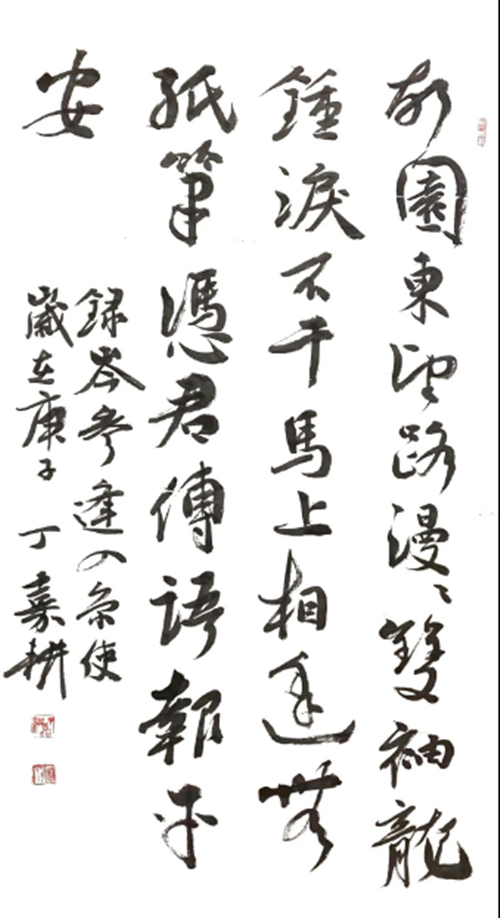 故園東望路漫〻雙袖龍
鍾淚不干馬上相逢無
紙筆憑君傳語報平
安
錄岑參逢入京使
歲在庚子 丁嘉耕